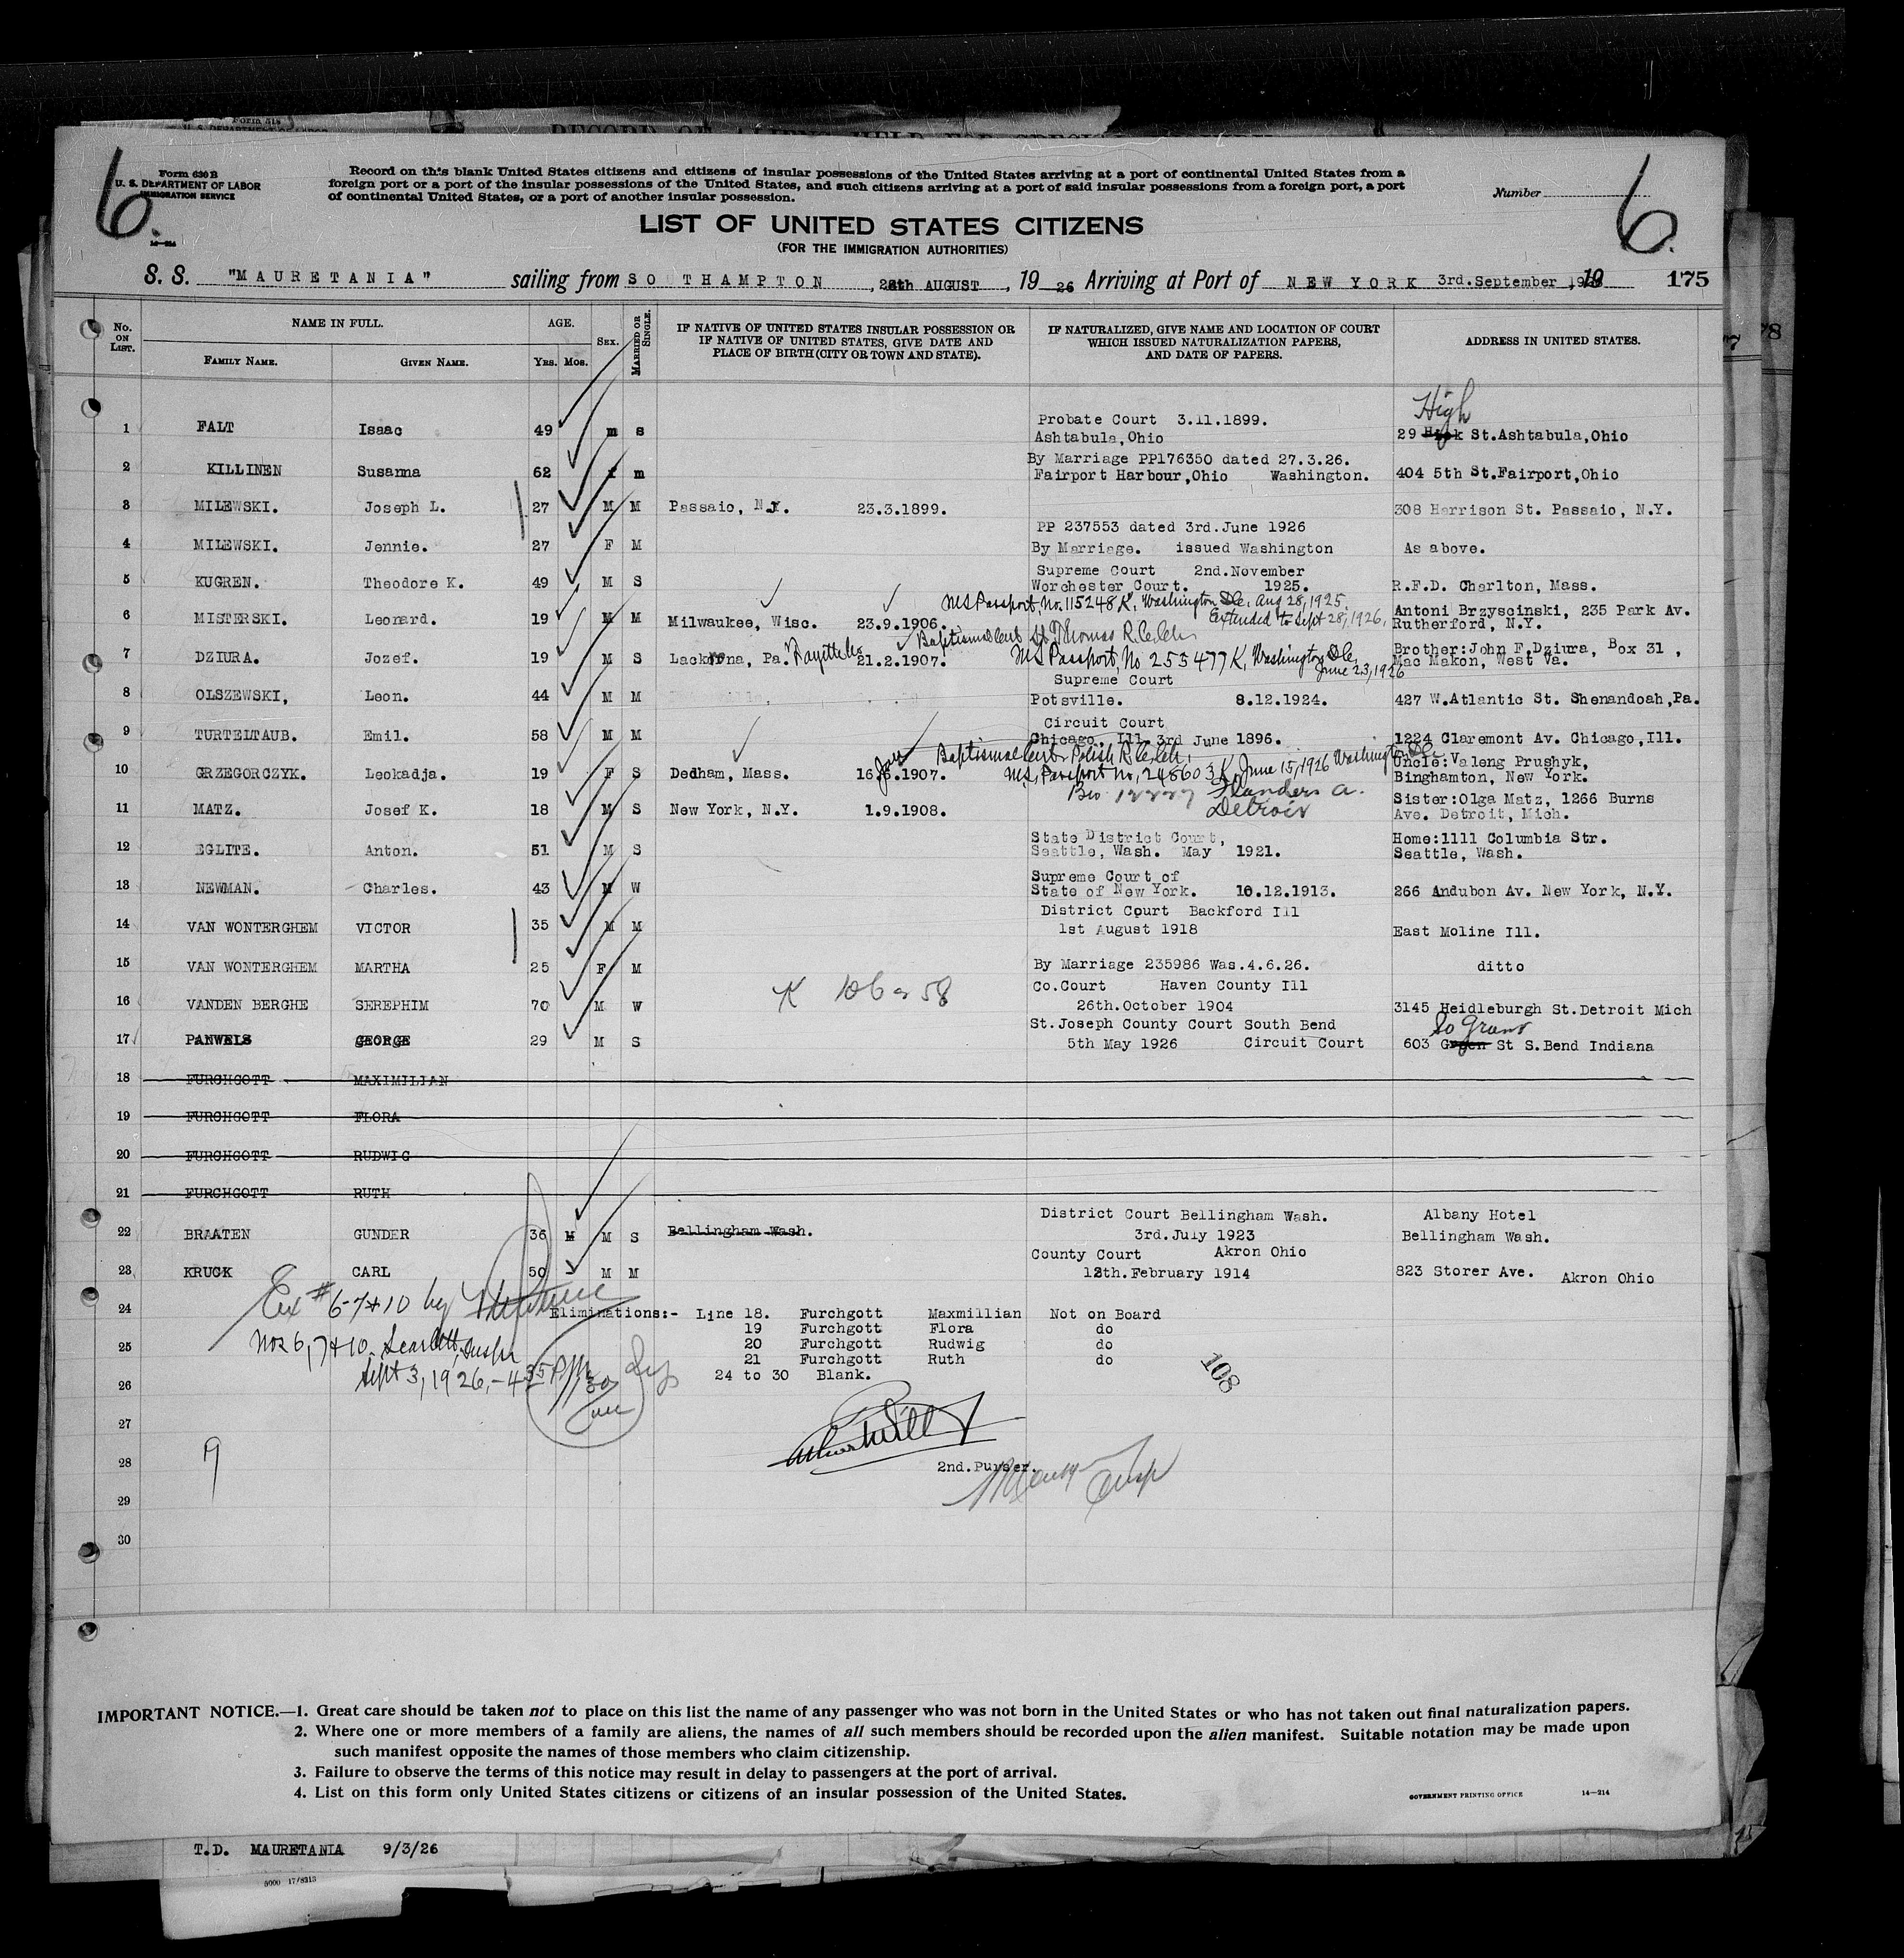 Form 630 B
U. S. DEPARTMENT OF LABOR
IMMIGRATION SERVICE
14—214
6.
Record on this blank United States citizens and citizens of insular possessions of the United States arriving at a port of continental United States from a
foreign port or a port of the insular possessions of the United States, and such citizens arriving at a port of said insular possessions from a foreign port, a port
of continental United States, or a port of another insular possession.
Number
6.
LIST OF UNITED STATES CITIZENS
(FOR THE IMMIGRATION AUTHORITIES)
S. S. "MAURETANIA" sailing from SO THAMPTON, 28th AUGUST, 19 26 Arriving at Port of NEW YORK 3rd.September, 19 175
No. ON LIST. NAME IN FULL. AGE. SEX. MARRIED OR SINGLE. IF NATIVE OF UNITED STATES INSULAR POSSESSION OR IF NATIVE OF UNITED STATES, GIVE DATE AND PLACE OF BIRTH (CITY OR TOWN AND STATE). IF NATURALIZED, GIVE NAME AND LOCATION OF COURT WHICH ISSUED NATURALIZATION PAPERS, AND DATE OF PAPERS. ADDRESS IN UNITED STATES.
FAMILY NAME. GIVEN NAME. YRS. MOS.
High
Probate Court 3.11.1899.
1 FALT Isaac 49 m s Ashtabula, Ohio 29 St.Ashtabula,Ohio
By Marriage PP176350 dated 27.3.26.
2 KILLINEN Susanna 62 f m Fairport Harbour,Ohio Washington. 404 5th St.Fairport,Ohio
3 MILEWSKI. Joseph L. 27 M M Passaic, N.J. 23.3.1899. 308 Harrison St. Passaic, N.Y.
PP 237553 dated 3rd.June 1926
4 MILEWSKI. Jennie. 27 F M By Marriage. issued Washington As above.
Supreme Court 2nd.November
5 KUGREN. Theodore K. 49 M S Worchester Court. 1925. R.F.D. Charlton, Mass.
US Passport, No. 115248 K, Washington DC, Aug 28, 1925.
Extended to Sept 28, 1926,
6 MISTERSKI. Leonard. 19 M M Milwaukee, Wisc. 23.9.1906. Antoni Brzyscinski, 235 Park Av.
Rutherford, N.Y.
Baptismal Cert St Thomas R.C. Ch
7 DZIURA. Jozef. 19 M S Lack na, Pa. Fayette Co 21.2.1907. US Passport, No 253477 K, Washington DC, June 23, 1926 Brother:John F.Dziura, Box 31 ,
Mac Makon, West Va.
Supreme Court
8 OLSZEWSKI, Leon. 44 M M Potsville. 8.12.1924. 427 W.Atlantic St. Shenandoah,Pa.
Circuit Court
9 TURTELTAUB. Emil. 58 M M Chicago, Ill. 3rd June 1896. 1224 Claremont Av. Chicago,Ill.
Baptismal Cert Polish R.C. Ch,
10 GRZEGORCZYK. Leokadja. 19 F S Dedham, Mass. Jan 16.6.1907. US, Passport no, 248603 K, June 15, 1926 Washington DC Uncle:Valeng Prushyk,
Binghamton, New York.
Flanders a.
Detroit
11 MATZ. Josef K. 18 M S New York, N.Y. 1.9.1908. Sister:Olga Matz, 1266 Burns
Ave. Detroit, Mich.
State District Court,
12 EGLITE. Anton. 51 M S Seattle, Wash. May 1921. Home:1111 Columbia Str.
Seattle, Wash.
Supreme Court of
13 NEWMAN. Charles. 43 M W State of New York. 10.12.1913. 266 Andubon Av. New York, N.Y.
District Court Backford Ill
14 VAN WONTERGHEM VICTOR 35 M M 1st August 1918 East Moline Ill.
15 VAN WONTERGHEM MARTHA 25 F M By Marriage 235986 Was.4.6.26. ditto
Co.Court Haven County Ill
16 VANDEN BERGHE SEREPHIM 70 M W 26th.October 1904 3145 Heidleburgh St.Detroit Mich
St.Joseph County Court South Bend So Grant
17 PANWELS GEORGE 29 M S 5th May 1926 Circuit Court 603 St S.Bend Indiana
18 FURCHGOTT MAXIMILIAN
19 FURCHGOTT FLORA
20 FURCHGOTT RUDWIG
21 FURCHGOTT RUTH
District Court Bellingham Wash. Albany Hotel
22 BRAATEN GUNDER 36 M M S Bellingham Wash. 3rd.July 1923 Bellingham Wash.
County Court Akron Ohio
23 KRUCK CARL 50 M M 12th.February 1914 823 Storer Ave. Akron Ohio
Ex # 6-7+10 by
24 Eliminations:- Line 18. Furchgott Maxmillian Not on Board
19 Furchgott Flora do
Nos 6, 7+10. Insp
25 20 Furchgott Rudwig do
21 Furchgott Ruth do
Sept 3, 1926, - 4 35 PM
26 24 to 30 Blank.
108
27
28 2nd.Purser.
Insp
9
29
30
IMPORTANT NOTICE.—1. Great care should be taken not to place on this list the name of any passenger who was not born in the United States or who has not taken out final naturalization papers.
2. Where one or more members of a family are aliens, the names of all such members should be recorded upon the alien manifest. Suitable notation may be made upon
such manifest opposite the names of those members who claim citizenship.
3. Failure to observe the terms of this notice may result in delay to passengers at the port of arrival.
4. List on this form only United States citizens or citizens of an insular possession of the United States.
GOVERNMENT PRINTING OFFICE 14—214
T.D. MAURETANIA 9/3/26